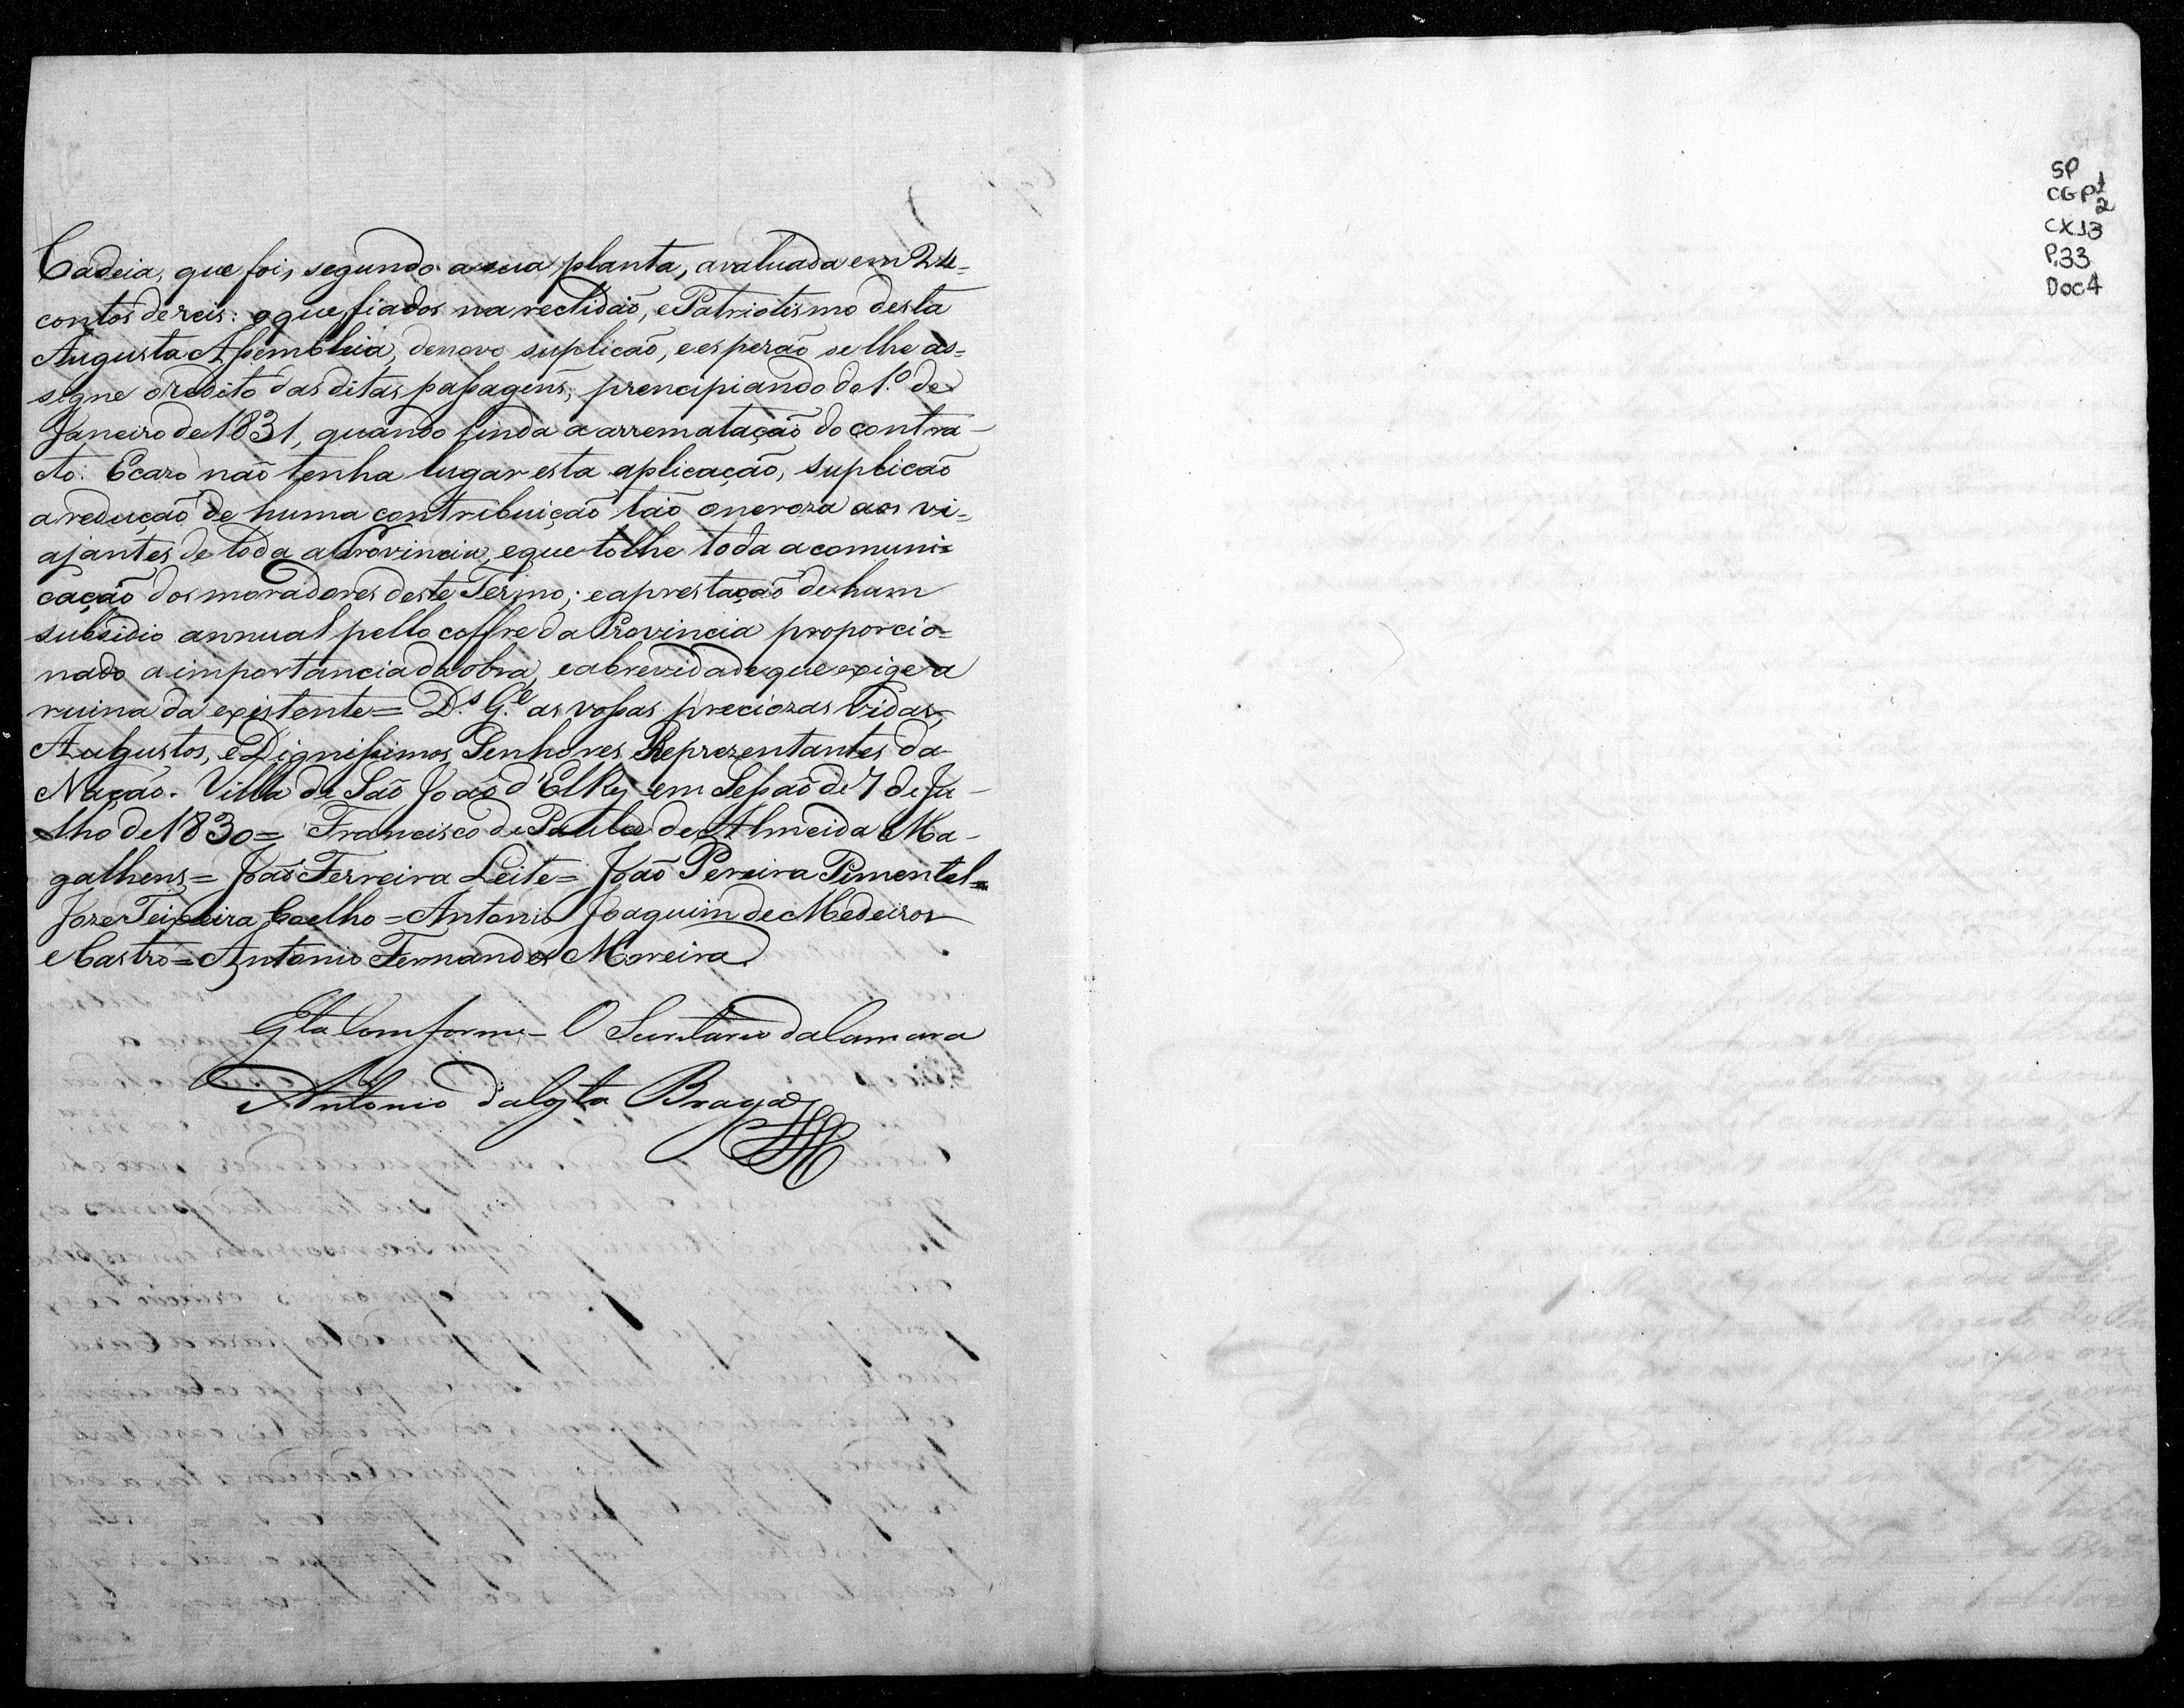 Cadeia, que foi, segundo a sua planta, avaluada em 24=
contos de reis: o que, fiados na rectidaõ, e Patriotismo desta
Augusta Assembleia, denovo suplicaõ, e esperaõ se lhe as=
signe o redito das ditas passagens; prencipiando do 1.º de
Janeiro de 1831, quando finda a arremataçaõ do contra-
cto: E cazo naõ tenha lugar esta aplicaçaõ, suplicaõ
a reduçaõ de huma contribuiçaõ taõ oneroza aos vi=
ajantes de toda a Provincia, e que tolhe toda a comuni=
caçaõ dos moradores deste Termo; e a prestaçaõ de hum
subsidio annual pello coffre da Provincia proporcio=
nado a importancia da obra, e a brevidade que exige a
ruina da existente = D.s G.e as vossas preciozas vidas,
Augustos, e Dignissimos Senhores Reprezentantes da
Naçaõ. Villa de Saõ Joaõ d'ElRey em Sessaõ de 7 de Ju-
lho de 1830 = Francisco de Paula de Almeida Ma-
galhens = Joaõ Ferreira Leite = Joaõ Pereira Pimentel =
Joze Teixeira Coelho = Antonio Joaquim de Medeiros
e Castro = Antonio Fernandes Moreira
Está Comforme - O Secretario da Camara
Antonio da Costa Braga
SP
CGP 1
2
CX 13
P. 33
Doc 4